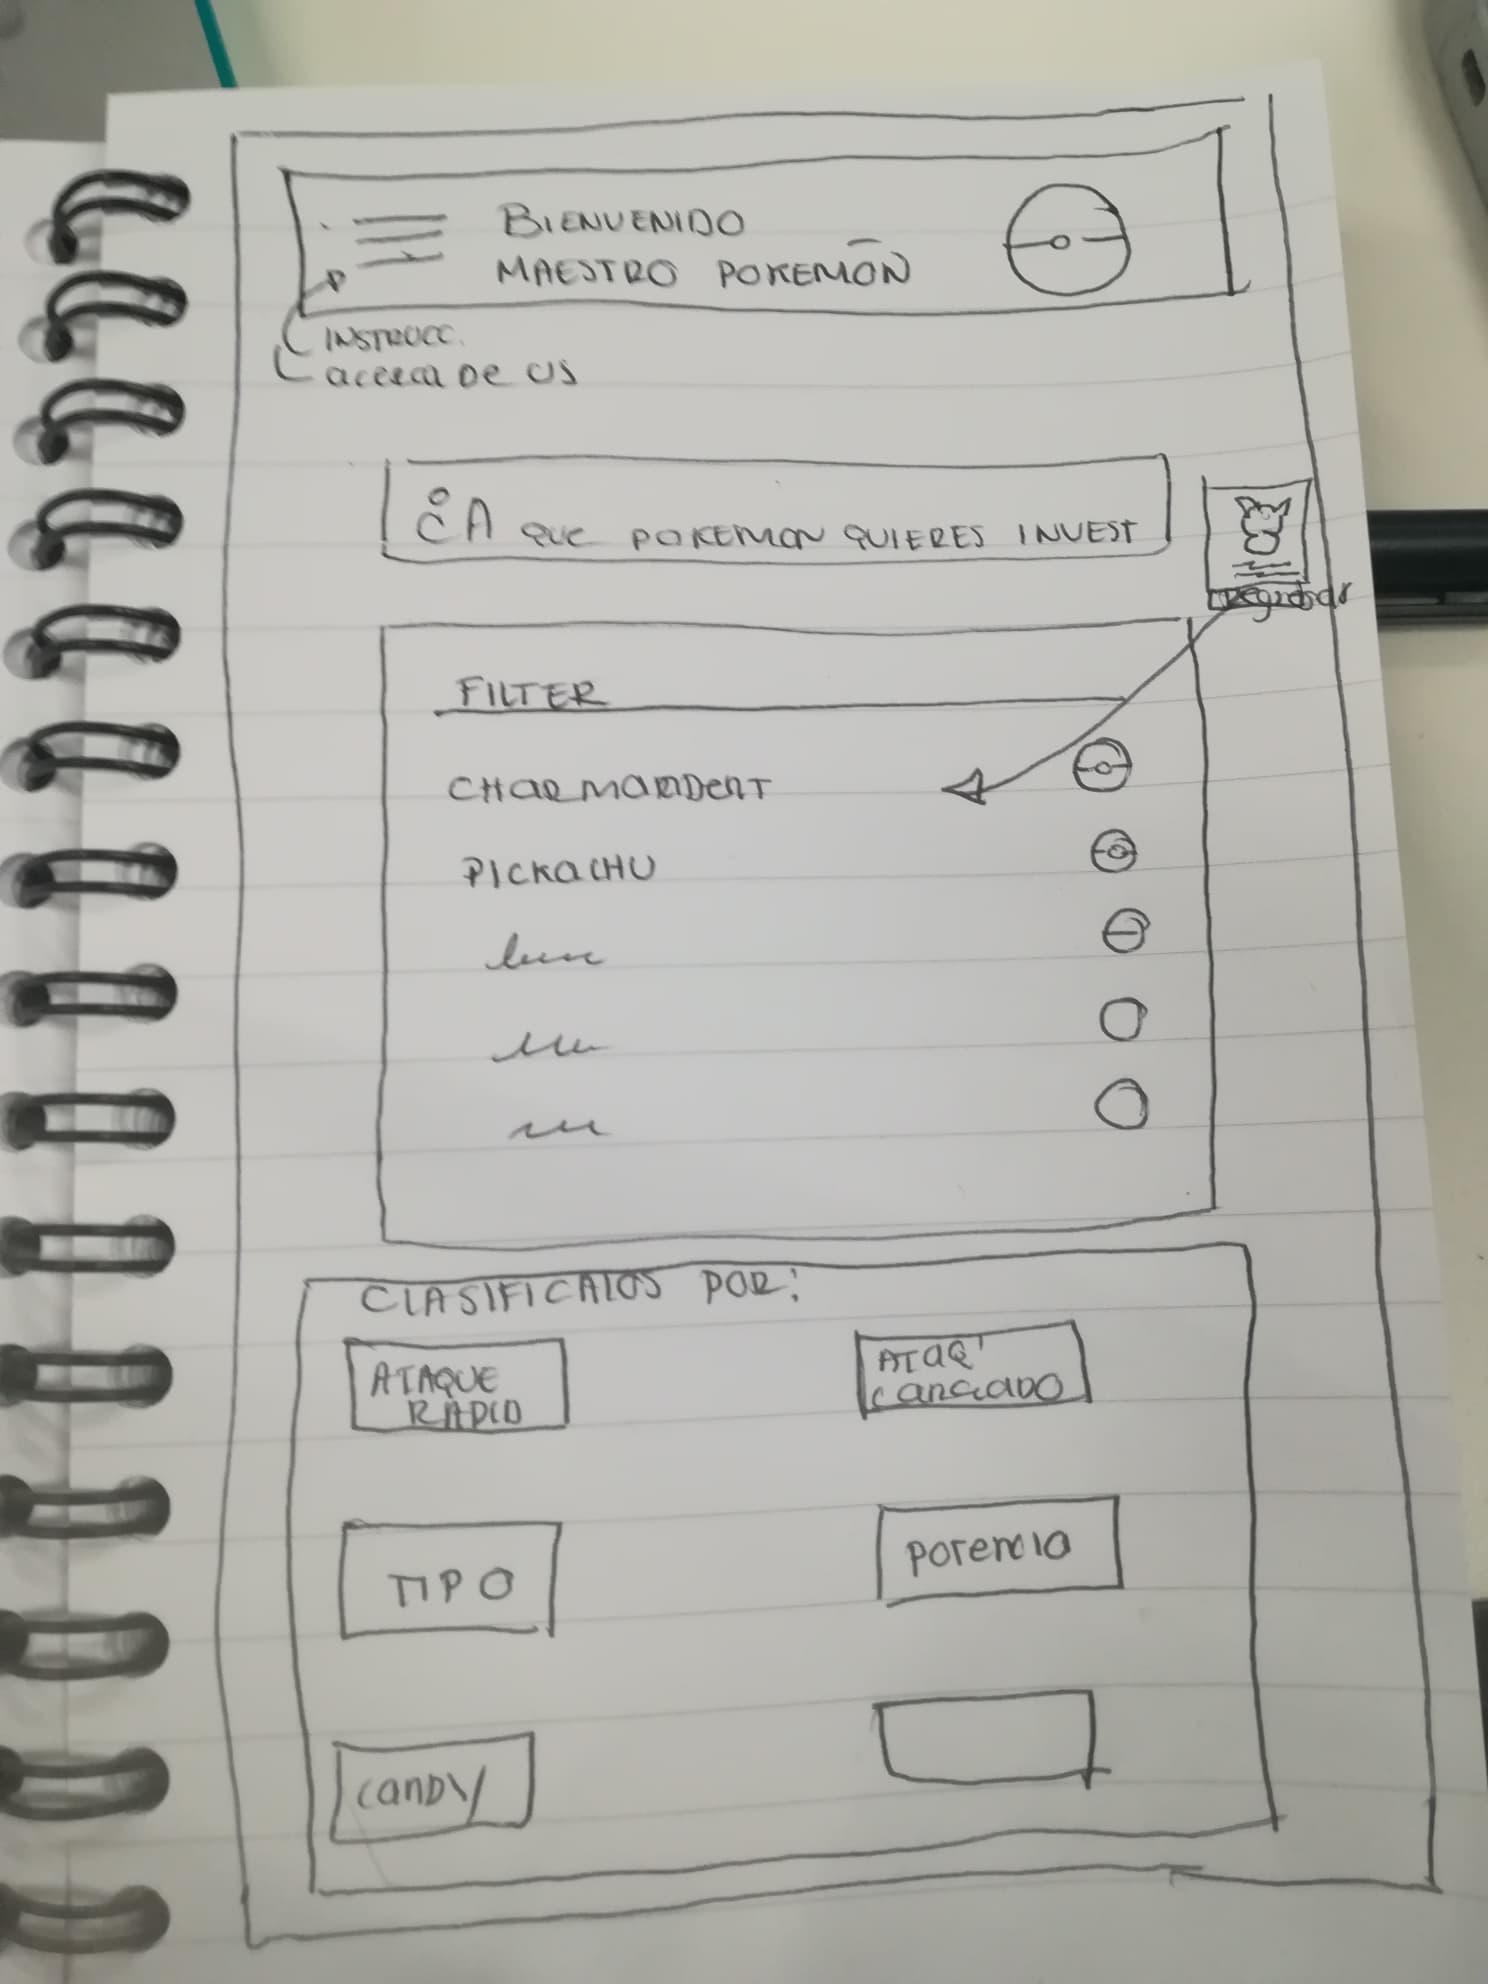 BIENVENIDO
MAESTRO POKEMON
INSTRUCC.
acerca De US
¿A que POKEMON QUIERES INVEST
Regresar
FILTER
CHARMANDENT
PICKACHU
CLASIFICALOS POR:
ATAQUE
RAPID
ATAQ'
CARGADO
TIPO
POTENCIA
CANDY